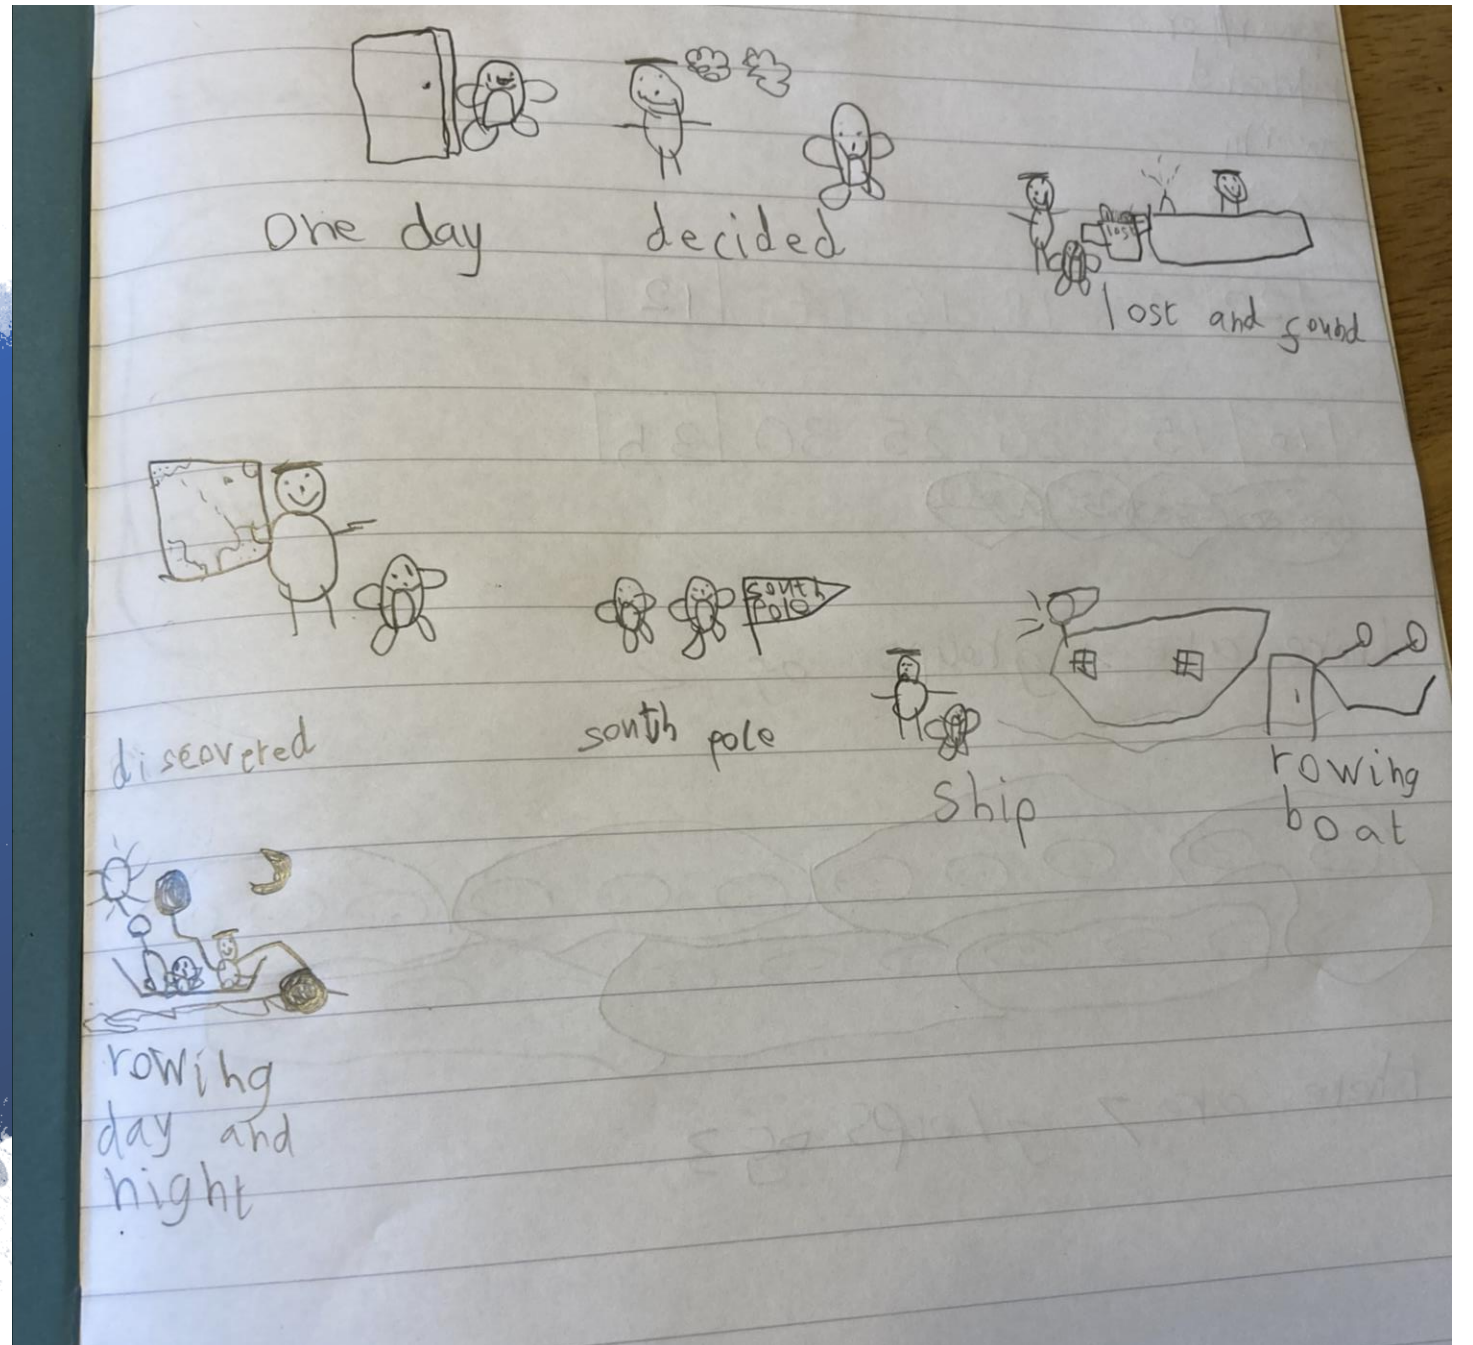 one day
decided
lost
lost and found
south
pole
discovered
south pole
ship
rowing
boat
rowing
day and
night